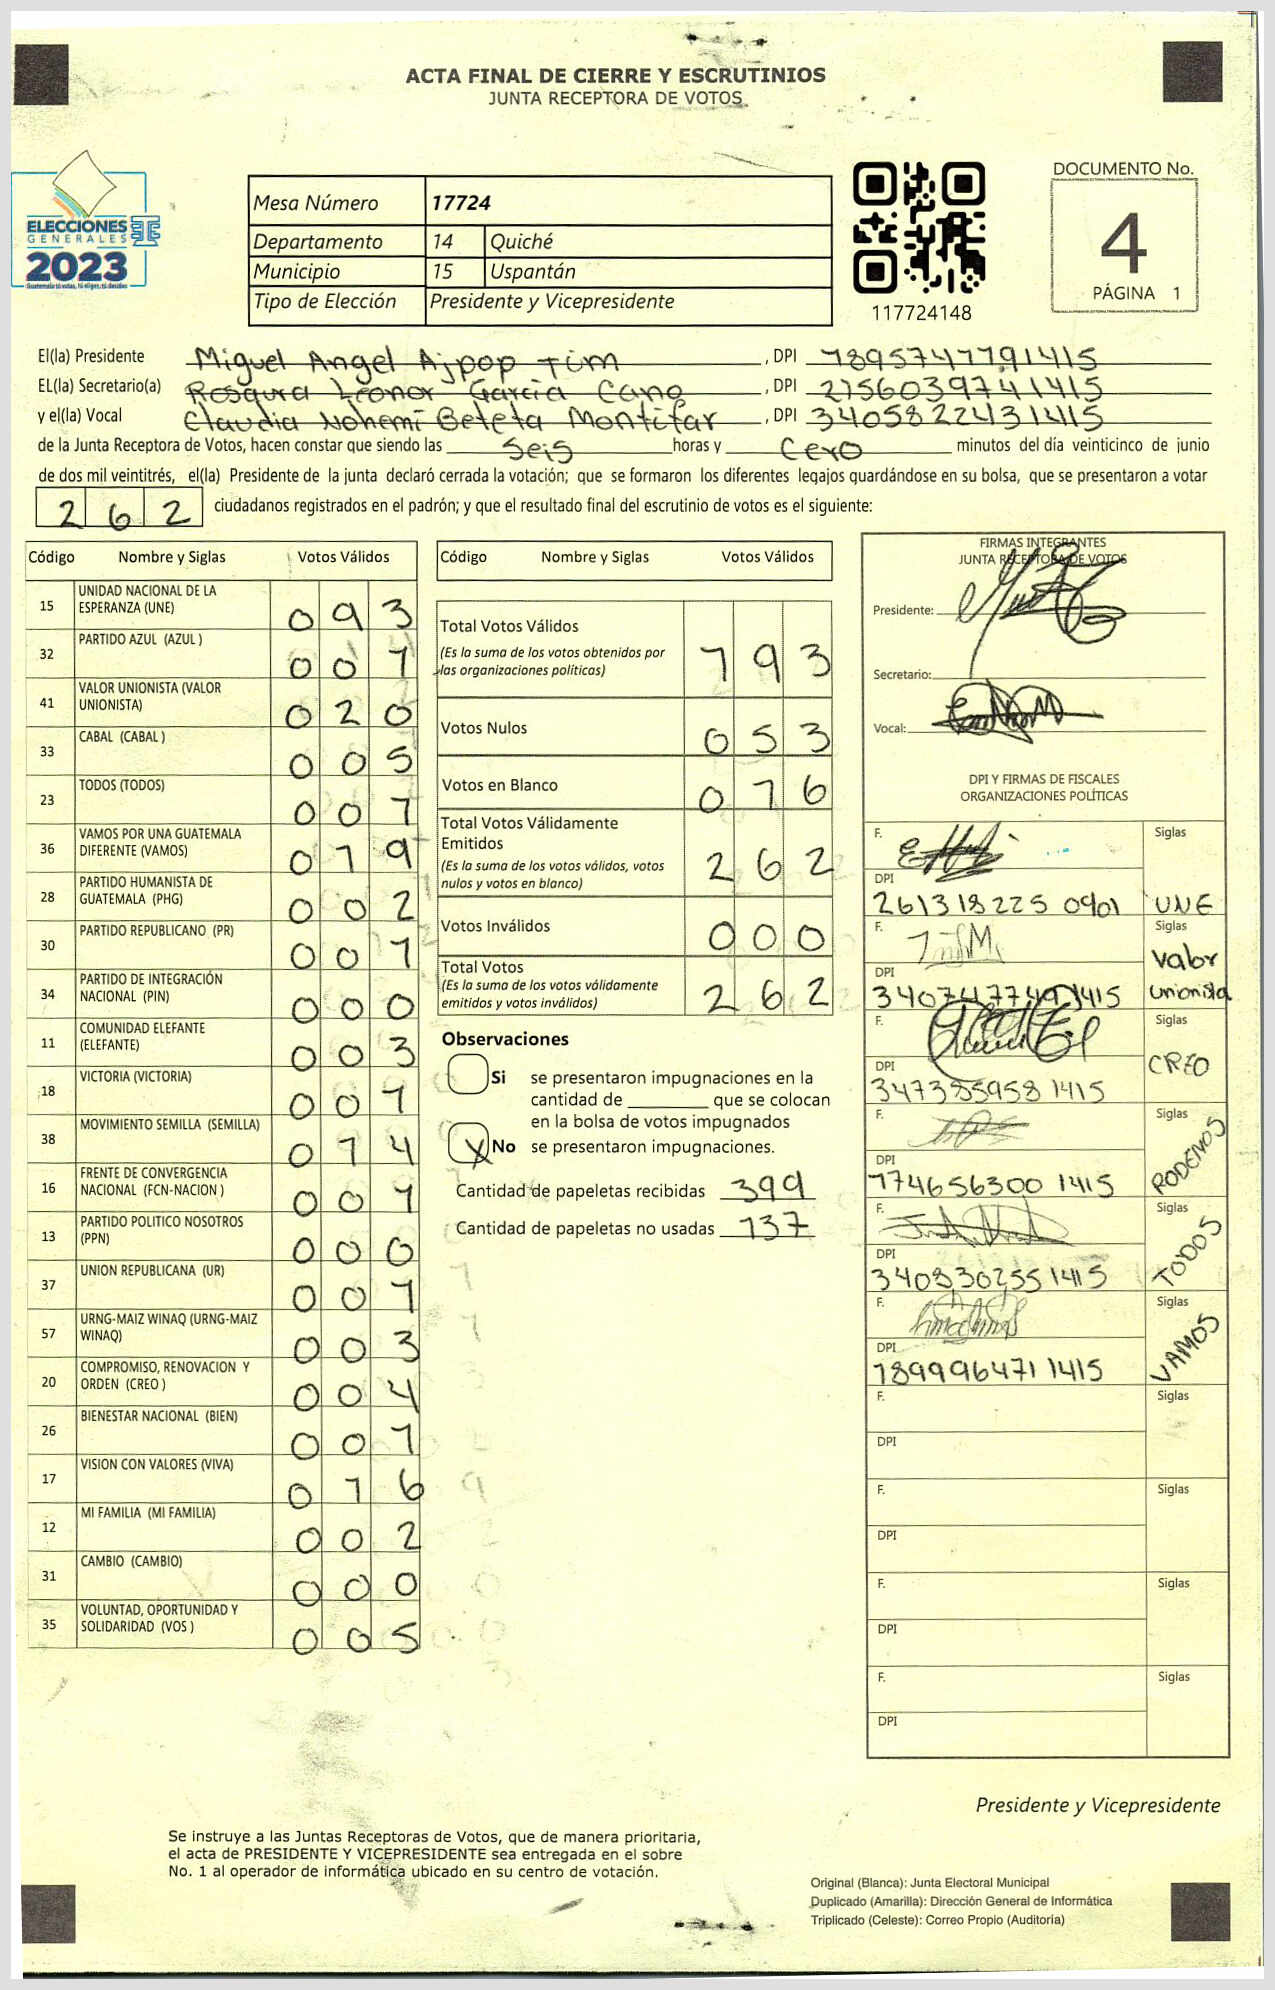 ACTA FINAL DE CIERRE Y ESCRUTINIOS
JUNTA RECEPTORA DE VOTOS
ELECCIONES
GENERALES
2023
Guatemala tú votas, tú eliges, tú decides
Mesa Número 17724
Departamento 14 Quiché
Municipio 15 Uspantán
Tipo de Elección Presidente y Vicepresidente
117724148
DOCUMENTO No.
4
PÁGINA 1
El(la) Presidente Miguel Angel Ajpop Tum , DPI 1895747791415
EL(la) Secretario(a) Rosaura Leonor Garcia Cano , DPI 2156039741415
y el(la) Vocal Claudia Nohemi Beteta Montifar , DPI 3405822431415
de la Junta Receptora de Votos, hacen constar que siendo las Seis horas y Cero minutos del día veinticinco de junio
de dos mil veintitrés, el(la) Presidente de la junta declaró cerrada la votación; que se formaron los diferentes legajos guardándose en su bolsa, que se presentaron a votar
262 ciudadanos registrados en el padrón; y que el resultado final del escrutinio de votos es el siguiente:
Código Nombre y Siglas Votos Válidos
15 UNIDAD NACIONAL DE LA ESPERANZA (UNE) 093
32 PARTIDO AZUL (AZUL ) 001
41 VALOR UNIONISTA (VALOR UNIONISTA) 020
33 CABAL (CABAL ) 005
23 TODOS (TODOS) 001
36 VAMOS POR UNA GUATEMALA DIFERENTE (VAMOS) 019
28 PARTIDO HUMANISTA DE GUATEMALA (PHG) 002
30 PARTIDO REPUBLICANO (PR) 001
34 PARTIDO DE INTEGRACIÓN NACIONAL (PIN) 000
11 COMUNIDAD ELEFANTE (ELEFANTE) 003
18 VICTORIA (VICTORIA) 001
38 MOVIMIENTO SEMILLA (SEMILLA) 014
16 FRENTE DE CONVERGENCIA NACIONAL (FCN-NACION ) 001
13 PARTIDO POLITICO NOSOTROS (PPN) 000
37 UNION REPUBLICANA (UR) 001
57 URNG-MAIZ WINAQ (URNG-MAIZ WINAQ) 003
20 COMPROMISO, RENOVACION Y ORDEN (CREO ) 004
26 BIENESTAR NACIONAL (BIEN) 001
17 VISION CON VALORES (VIVA) 016
12 MI FAMILIA (MI FAMILIA) 002
31 CAMBIO (CAMBIO) 000
35 VOLUNTAD, OPORTUNIDAD Y SOLIDARIDAD (VOS ) 005
Código Nombre y Siglas Votos Válidos
Total Votos Válidos 193
(Es la suma de los votos obtenidos por
las organizaciones políticas)
Votos Nulos 053
Votos en Blanco 016
Total Votos Válidamente
Emitidos 262
(Es la suma de los votos válidos, votos
nulos y votos en blanco)
Votos Inválidos 000
Total Votos 262
(Es la suma de los votos válidamente
emitidos y votos inválidos)
Observaciones
Si se presentaron impugnaciones en la
cantidad de ________ que se colocan
en la bolsa de votos impugnados
X No se presentaron impugnaciones.
Cantidad de papeletas recibidas 399
Cantidad de papeletas no usadas 137
FIRMAS INTEGRANTES
JUNTA RECEPTORA DE VOTOS
Presidente:
Secretario:
Vocal:
DPI Y FIRMAS DE FISCALES
ORGANIZACIONES POLÍTICAS
F. Siglas
DPI
261318225 0901 UNE
F. Siglas
DPI
3407477491415 Valor Unionista
F. Siglas
DPI
347385958 1415 CREO
F. Siglas
DPI
174656300 1415 PODEMOS
F. Siglas
DPI
340830255 1415 TODOS
F. Siglas
DPI
189996471 1415 VAMOS
F. Siglas
DPI
F. Siglas
DPI
F. Siglas
DPI
F. Siglas
DPI
Presidente y Vicepresidente
Se instruye a las Juntas Receptoras de Votos, que de manera prioritaria,
el acta de PRESIDENTE Y VICEPRESIDENTE sea entregada en el sobre
No. 1 al operador de informática ubicado en su centro de votación.
Original (Blanca): Junta Electoral Municipal
Duplicado (Amarilla): Dirección General de Informática
Triplicado (Celeste): Correo Propio (Auditoría)